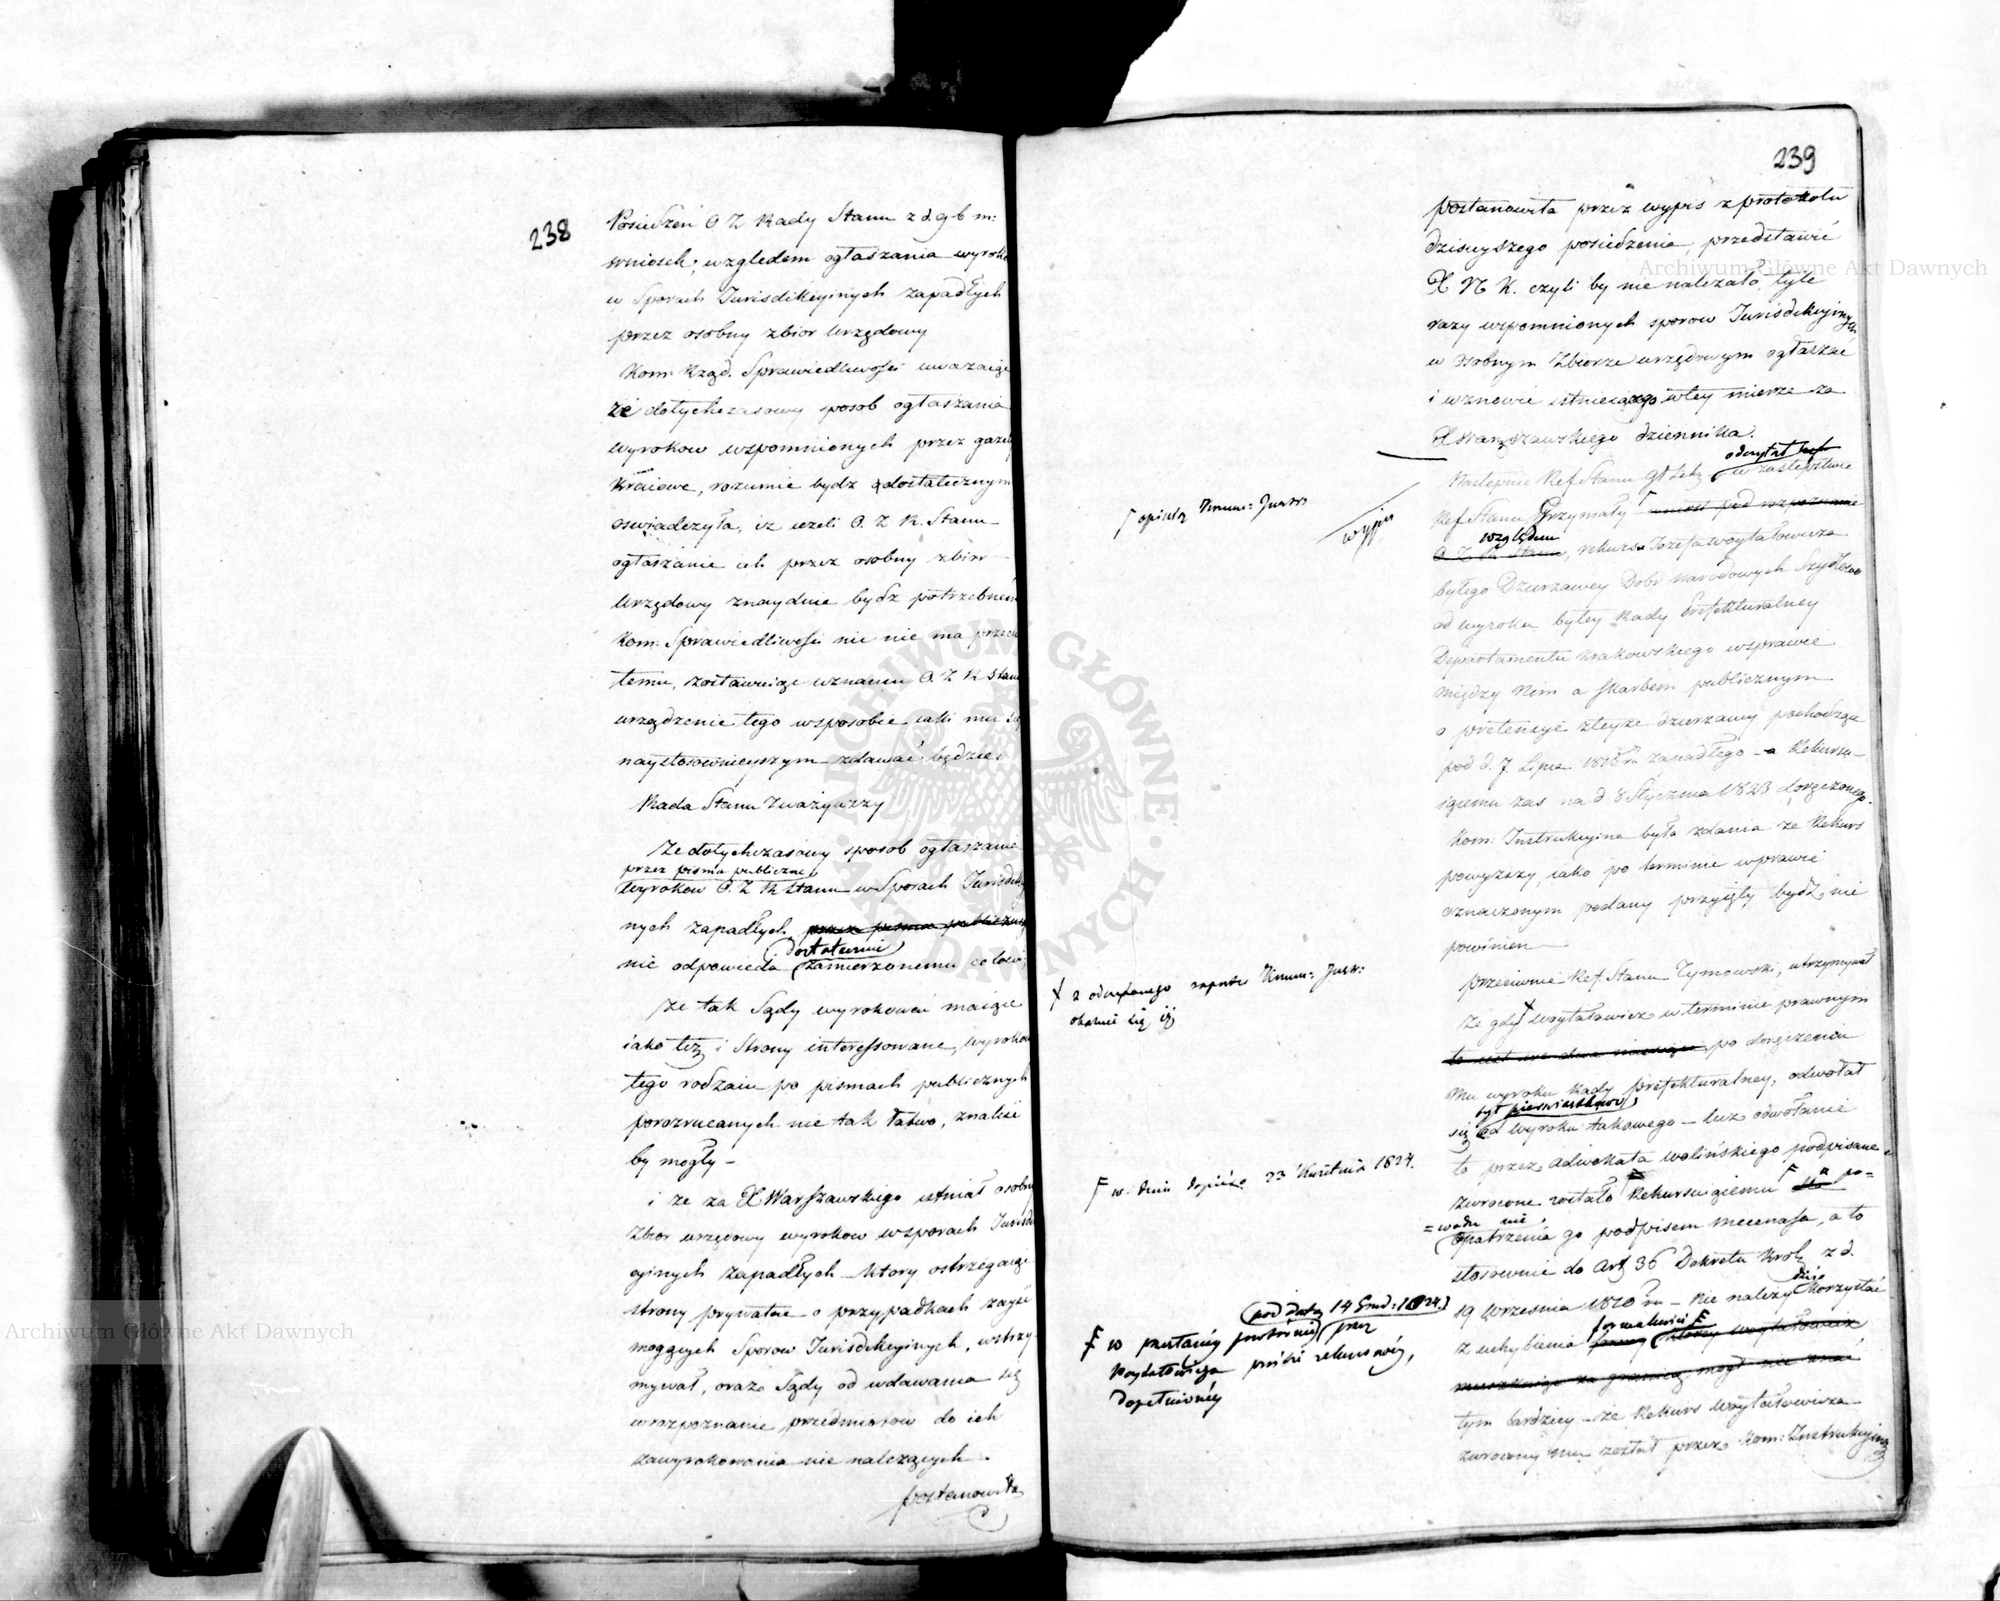 238
Posiedzeń O Z Rady Stanu z d. 9 b m:
wniosek, względem ogłaszania wyroko
w Sporach Jurisdikcyinych zapadłych
przez osobny zbior Urzędowy
Kom: Rząd. Sprawiedliwości uwazaiąc
że dotychczasowy sposob ogłaszania
wyrokow wspomnionych przez gazety
Kraiowe, rozumie bydz dostatecznym
oswiadczyła, iz iezeli O. Z R. Stanu
ogłaszanie ich przez osobny zbior
Urzędowy znayduie bydz potrzebnem
Kom: Sprawiedliwości nic nie ma przeciw
temu, zostawuiąc uznaniu O. Z R Stanu
urządzenie tego wsposobie iaki mu się
naystosownieyszym zdawać będzie.
Rada Stanu Zważywszy
że dotychczasowy sposob ogłaszania
przez pisma publiczne
Wyrokow O. Z R Stanu w Sporach Jurisdik
nych zapadłych przez pisma publiczne
dostatecznie
nie odpowiada zamierzonemu celowi,
Ze tak Sądy wyrokować maiące
iako też i Strony interessowane, wyrokow
tego rodzaiu po pismach publicznych
porozrucanych nie tak łatwo, znaleść
by mogły –
i ze za X Warszawskiego istniał osobny
Zbior urzędowy wyrokow wsporach Jurisdi
cyinych zapadłych – ktory ostrzegaiąc
strony prywatne o przypadkach zayść
mogących Sporow Jurisdikcyinych, wstrzy
mywał, oraz Sądy od wdawania się
w rozpoznanie przedmiotow do ich
zawyrokowania nie nalezących.
postanowiła
239
postanowiła przez wypis z protokołu
dzisieyszego posiedzenia, przedstawić
X N K. czyli by nie nalezało, tyle
razy wspomnionych sporow Jurisdikcyinych
w osobnym Zbiorze urzędowym ogłaszać
i wznowić istnieiącego wtey mierze za
X Warszawskiego dziennika.
odczytał
Następnie Ref Stanu w zastępstwie
opinią Komm: Instr
wypis
Ref Stanu Grzymały wniosł pod rozpoznanie
względem
O Z R Stanu, rekursu Jozefa woytałowicza
byłego Dzierzawcy Dobr narodowych
od wyroku byłey Rady Prefekturalney
Departamentu Krakowskiego wsprawie
między Nim a skarbem publicznym
o pretensye zteyże dzierzawy pochodzące
pod d. 7. Lipca zapadłego – a Rekursu–
iącemu zas na d 8 Stycznia 1823 doręczonego.
Kom: Instrukcyina była zdania ze Rekurs
powyzszy, iako po terminie wprawie
oznaczonym podany przyięty bydz nie
powinien –
przeciwnie Ref. Stanu Tymowski, utrzymywał
z odczytanego raportu Komm: Instr:
okazuie się iż
Ze gdy woytałowicz w terminie prawnym
po doręczeniu
mu wyroku Rady prefekturalney, odwołał
był pierwiastkowo
się od wyroku takowego – lecz odwołanie
to przez Adwokata wolińskiego podpisane
w dniu dopiero 23 Kwietnia 1824.
zwrocone zostało Rekursuiącemu z po=
=wodu nie
opatrzenia go podpisem mecenasa, a to
stosownie do Art 36 Dekretu Krol z d.
19 Września 1810 ru – Nie nalezy korzystać
formalności
z uchybienia woytałowicz
mieszkaiąc za granicą mogł nie znać
pod datą 14 Grud: 1824.
w powtornie przez
Woytałowicza
dopełnioney
tym bardziey – ze Rekurs woytałowicza
zwrocony mu został przez Kom: Instrukcyiną
Archiwum Główne Akt Dawnych
Archiwum Główne Akt Dawnych
ARCHIWUM GŁÓWNE AKT DAWNYCH